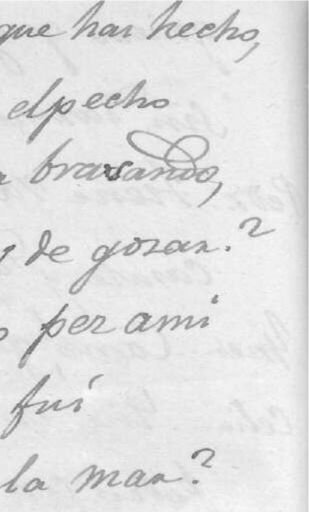 que has hecho,
el pecho
brasando,
de gozar.?
per ami
fui
la mar.?